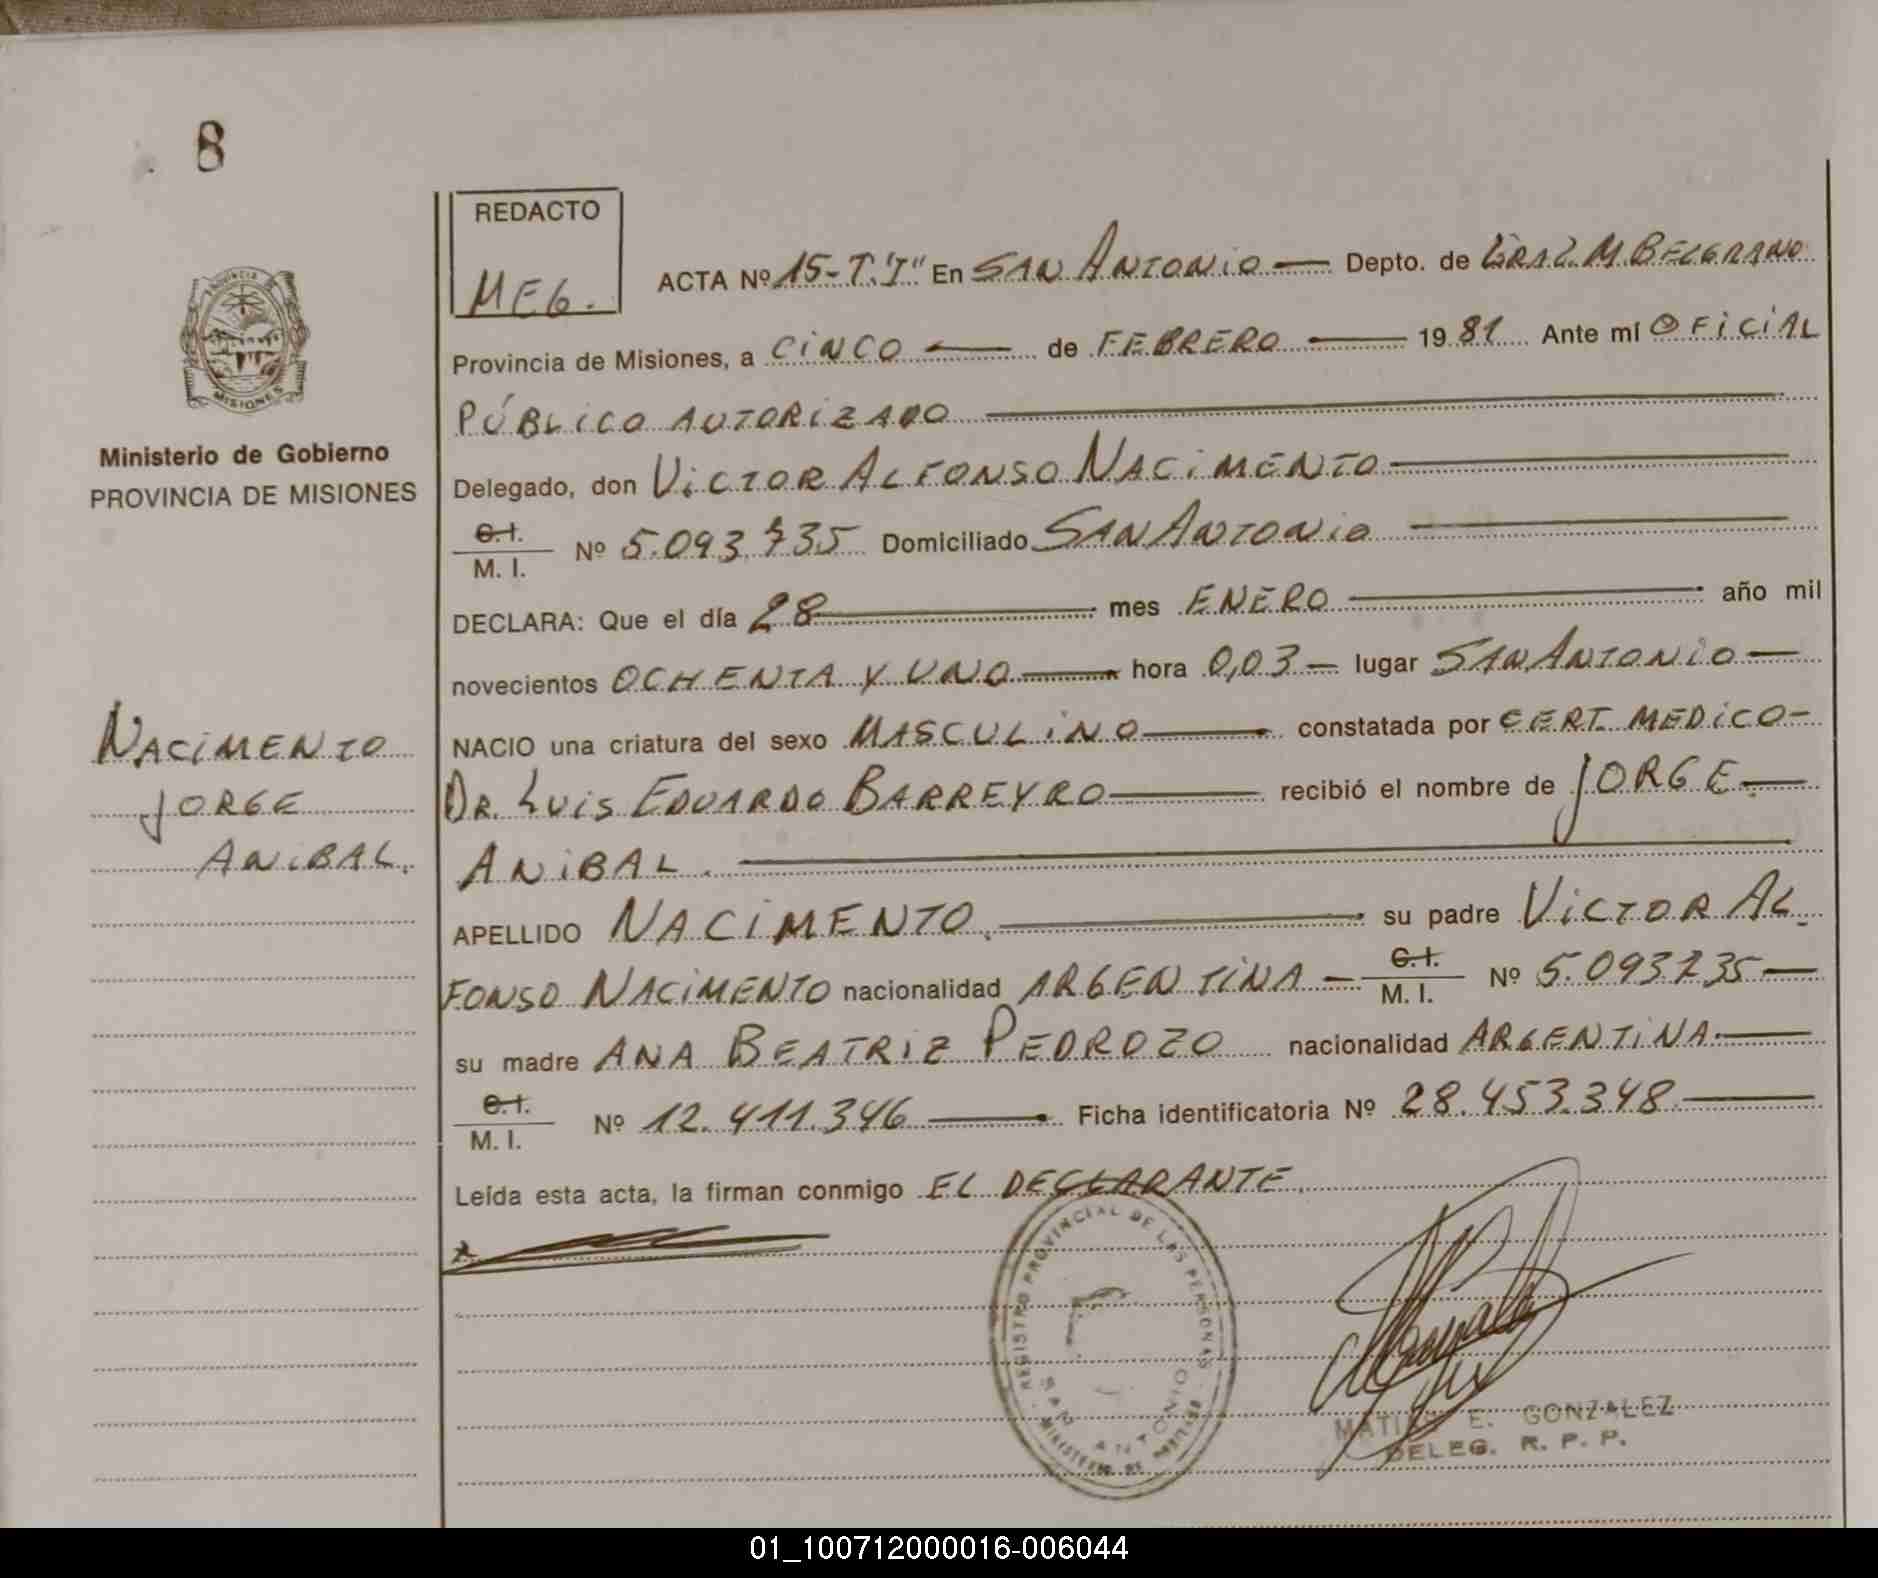 8
REDACTO
MEG.
ACTA Nº 15-T."I" En SAN ANTONIO Depto. de GRAL. M. BELGRANO
Provincia de Misiones, a CINCO de FEBRERO 1981 Ante mí OFICIAL
PÚBLICO AUTORIZADO
Delegado, don VICTOR ALFONSO NACIMENTO
C.I.
M. I. Nº 5.093.735 Domiciliado SAN ANTONIO
DECLARA: Que el día 28 mes ENERO año mil
novecientos OCHENTA Y UNO hora 0,03 lugar SAN ANTONIO
NACIO una criatura del sexo MASCULINO constatada por CERT. MEDICO
DR. LUIS EDUARDO BARREYRO recibió el nombre de JORGE
ANIBAL.
APELLIDO NACIMENTO. su padre VICTOR AL
FONSO NACIMENTO nacionalidad ARGENTINA C.I. M. I. Nº 5.093.735
su madre ANA BEATRIZ PEDROZO nacionalidad ARGENTINA
C.I.
M. I. Nº 12.411.346 Ficha identificatoria Nº 28.453.348
Leída esta acta, la firman conmigo EL DECLARANTE.
PROVINCIA
MISIONES
Ministerio de Gobierno
PROVINCIA DE MISIONES
NACIMENTO
JORGE
ANIBAL.
REGISTRO PROVINCIAL DE LAS PERSONAS
SAN ANTONIO
MINISTERIO DE
MATIAS E. GONZALEZ
DELEG. R. P. P.
01_100712000016-006044